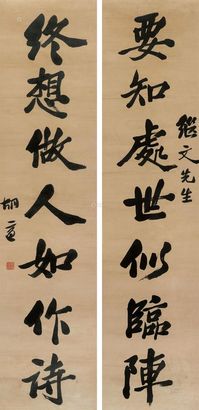 要知處世似臨陣
繼文先生
終想做人如作詩
胡適